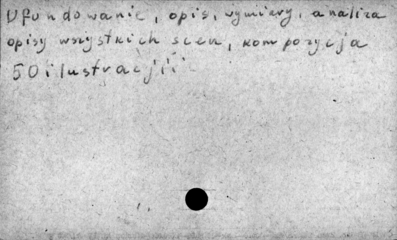 Ufundowanie, opis, wymiary, analiza
opisy wszystkich scen, kompozycja
50 ilustracji